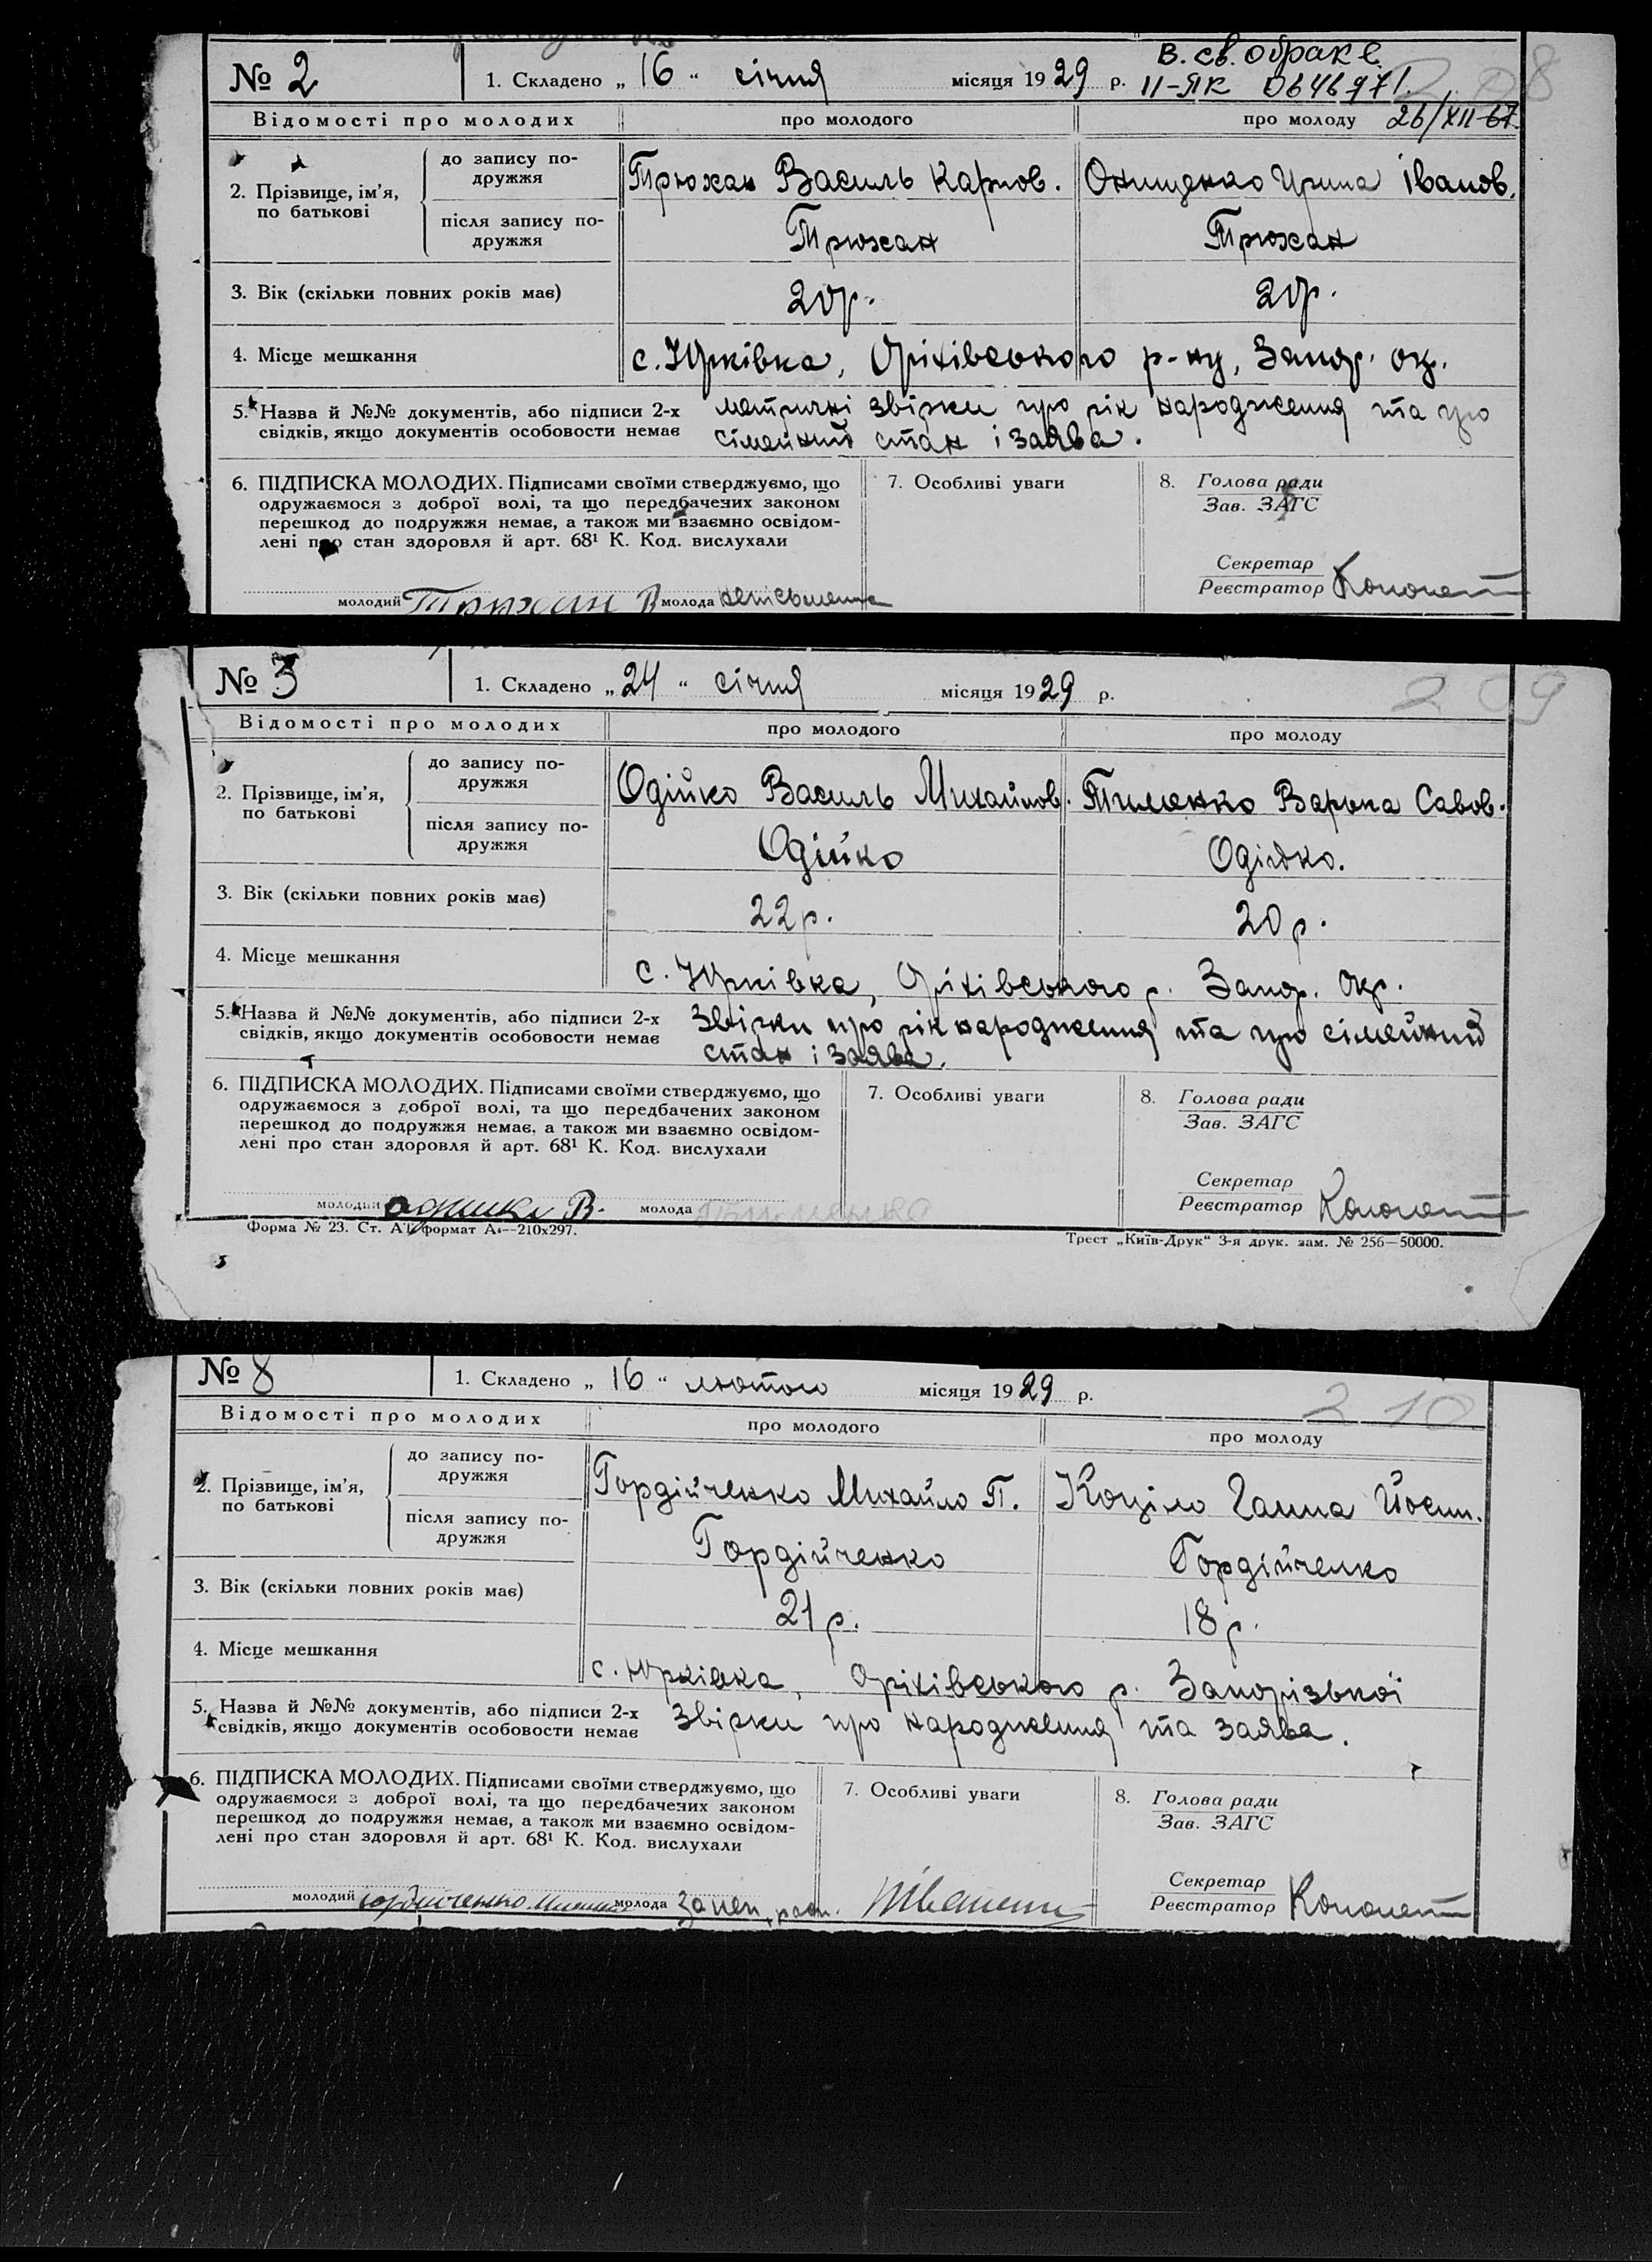 № 2 1. Складено „ 16 “ січня місяця 1929 р. в. св. о браке
II-ЯК 0646971.
Відомості про молодих про молодого про молоду 26/XII-67.
2. Прізвище, ім’я, по батькові
до запису подружжя Трюхан Василь Карпов. Онищенко Ирина Іванов.
після запису подружжя Трюхан Трюхан
3. Вік (скільки повних років має) 20р. 20р.
4. Місце мешкання с. Юрківка, Оріхівського р-ну, Запор. ок.
5. Назва й №№ документів, або підписи 2-х метричні звірки про рік народження та про
свідків, якщо документів особовости немає сімейний стан і заява.
6. ПІДПИСКА МОЛОДИХ. Підписами своїми стверджуємо, що 7. Особливі уваги 8. Голова ради
одружаємося з доброї волі, та що передбачених законом Зав. ЗАГС
перешкод до подружжя немає, а також ми взаємно освідом-
лені про стан здоровля й арт. 68¹ К. Код. вислухали
Секретар
молодий Трюхан В молода неписьменна Реєстратор
№ 3 1. Складено „ 24 “ січня місяця 1929 р. 209
Відомості про молодих про молодого про молоду
2. Прізвище, ім’я, по батькові
до запису подружжя Одійко Василь Михайлов. Тименко Варька Савов.
після запису подружжя Одійко Одійко.
3. Вік (скільки повних років має) 22р. 20р.
4. Місце мешкання с. Юрківка, Оріхівського р. Запор. Окр.
5. Назва й №№ документів, або підписи 2-х Звірки про рік народження та про сімейний
свідків, якщо документів особовости немає стан і заява.
6. ПІДПИСКА МОЛОДИХ. Підписами своїми стверджуємо, що 7. Особливі уваги 8. Голова ради
одружаємося з доброї волі, та що передбачених законом Зав. ЗАГС
перешкод до подружжя немає, а також ми взаємно освідом-
лені про стан здоровля й арт. 68¹ К. Код. вислухали
Секретар
молодий В. молода Реєстратор
Форма № 23. Ст. А1, формат А4—210х297. Трест „Київ-Друк“ 3-я друк. зам. № 256—50000.
№ 8 1. Складено „ 16 “ лютого місяця 1929 р. 210
Відомості про молодих про молодого про молоду
2. Прізвище, ім’я, по батькові
до запису подружжя Гордійченко Михайло П. Коціло Ганна Йосип.
після запису подружжя Гордійченко Гордійченко
3. Вік (скільки повних років має) 21р. 18р.
4. Місце мешкання с. Юрківка, Оріхівського р. Запорізької
5. Назва й №№ документів, або підписи 2-х Звірки про народження та заява.
свідків, якщо документів особовости немає
6. ПІДПИСКА МОЛОДИХ. Підписами своїми стверджуємо, що 7. Особливі уваги 8. Голова ради
одружаємося з доброї волі, та що передбачених законом Зав. ЗАГС
перешкод до подружжя немає, а також ми взаємно освідом-
лені про стан здоровля й арт. 68¹ К. Код. вислухали
Секретар
молодий Гордійченко молода Реєстратор